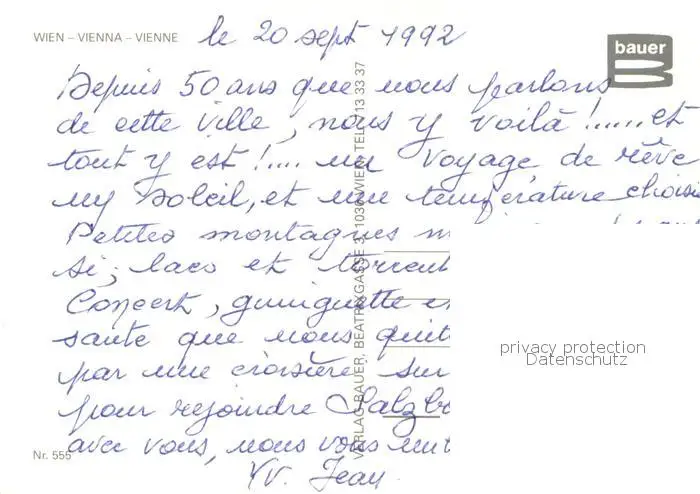 WIEN – VIENNA – VIENNE
le 20 sept 1992
bauer
Depuis 50 ans que nous parlons
de cette ville, nous y voilà !...... et
tout y est !.... un voyage de rêve
un soleil, et une température choisi
Petites montagnes
si, lacs et torrent
Concert, guinguette
sante que nous quit
par une croisière sur
pour rejoindre Salzb
avec vous, nous vous
YV. Jean
Nr. 555
VERLAG BAUER, BEATRIXGASSE 3, 1030 WIEN, TEL. 713 33 37
privacy protection
Datenschutz